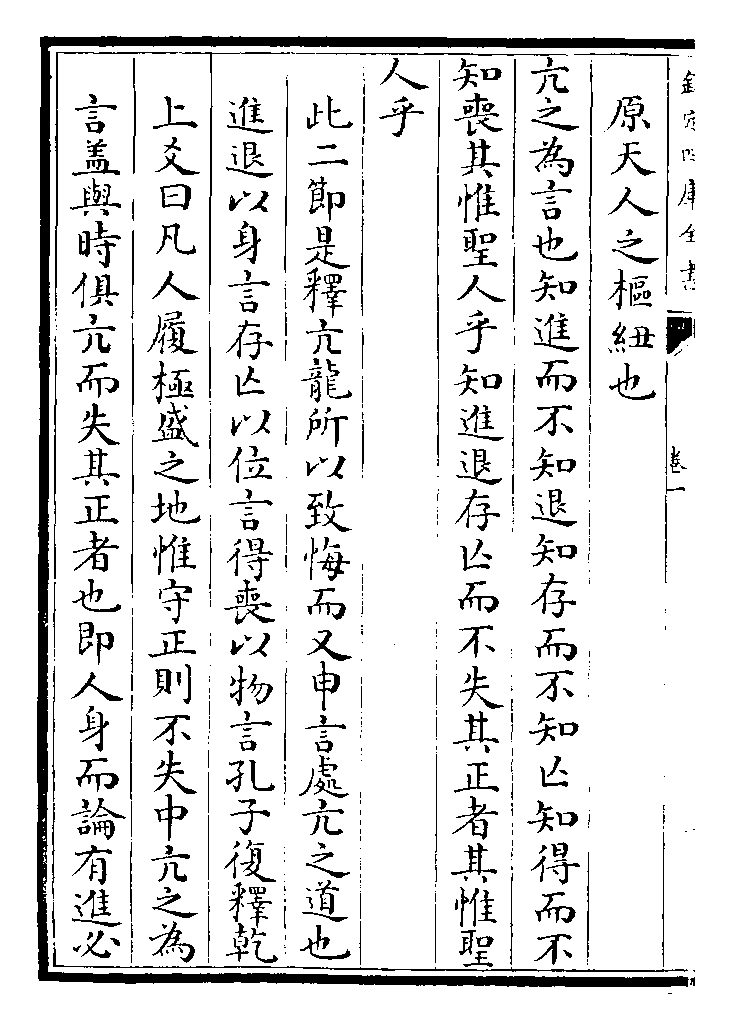 欽定四庫全書
卷一
原天人之樞紐也
亢之為言也知進而不知退知存而不知亾知得而不
知喪其惟聖人乎知進退存亾而不失其正者其惟聖
人乎
此二節是釋亢龍所以致悔而又申言處亢之道也
進退以身言存亾以位言得喪以物言孔子復釋乾
上爻曰凡人履極盛之地惟守正則不失中亢之為
言盖與時俱亢而失其正者也即人身而論有進必